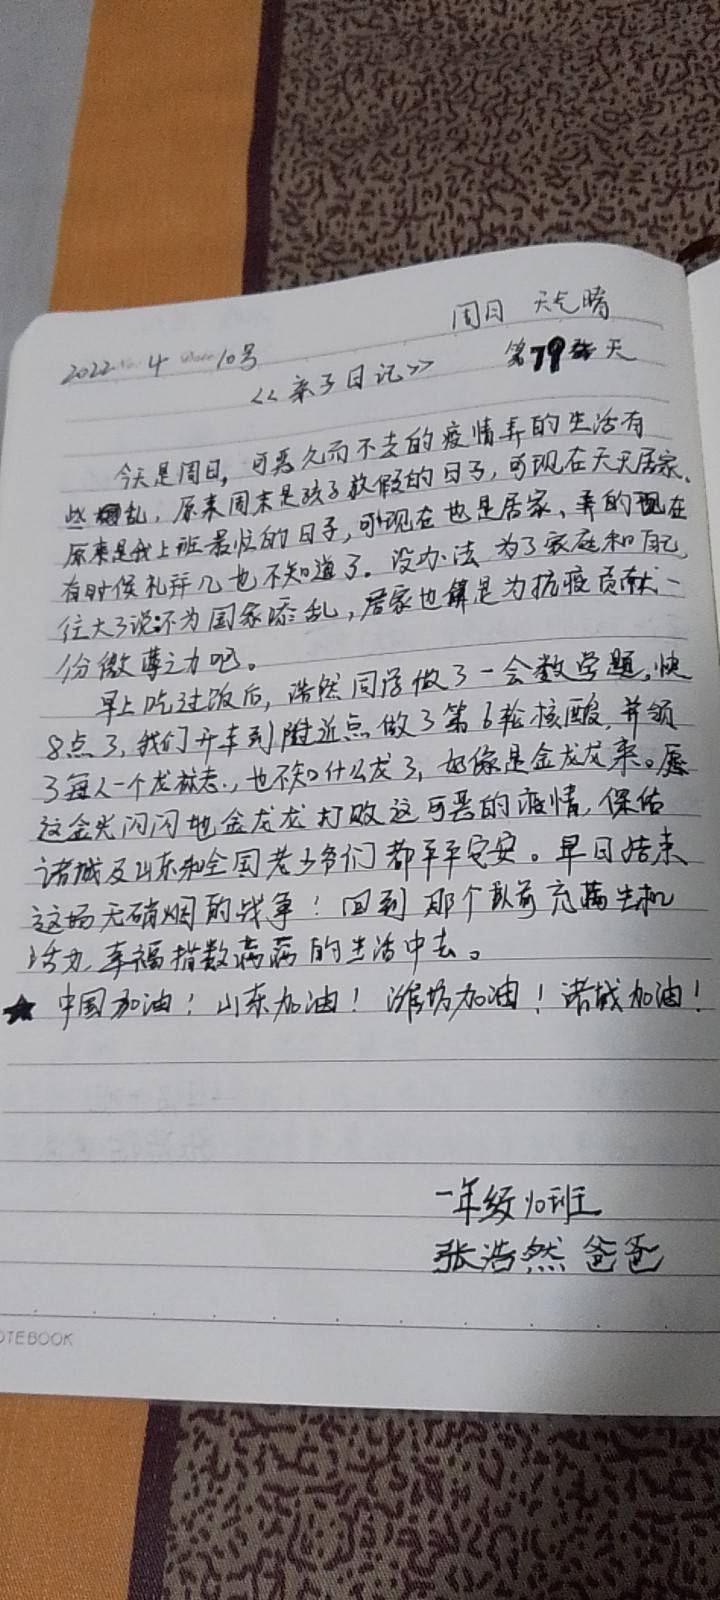 周日 天气晴
2022 4 10号
<<亲子日记>> 第79天
今天是周日,可恶久而不去的疫情弄的生活有
些乱,原来周末是孩子放假的日子,可现在天天居家、
原来是我上班最忙的日子,可现在也是居家、弄的现在
有时候礼拜几也不知道了。没办法 为了家庭和自己,
往大了说:不为国家添乱,居家也算是为抗疫贡献一
份微薄之力吧。
早上吃过饭后,浩然同学做了一会数学题,快
8点了,我们开车到附近点做了第6轮核酸,并领
了每人一个龙标志.,也不知什么龙了,好像是金龙龙来。愿
这金光闪闪地金龙龙打败这可恶的疫情,保佑
诸城及山东和全国老少爷们都平平安安。早日结束
这场无硝烟的战争!回到那个以前充满生机
活力,幸福指数满满的生活中去。
★ 中国加油!山东加油!潍坊加油!诸城加油!
一年级10班
张浩然爸爸
NOTEBOOK